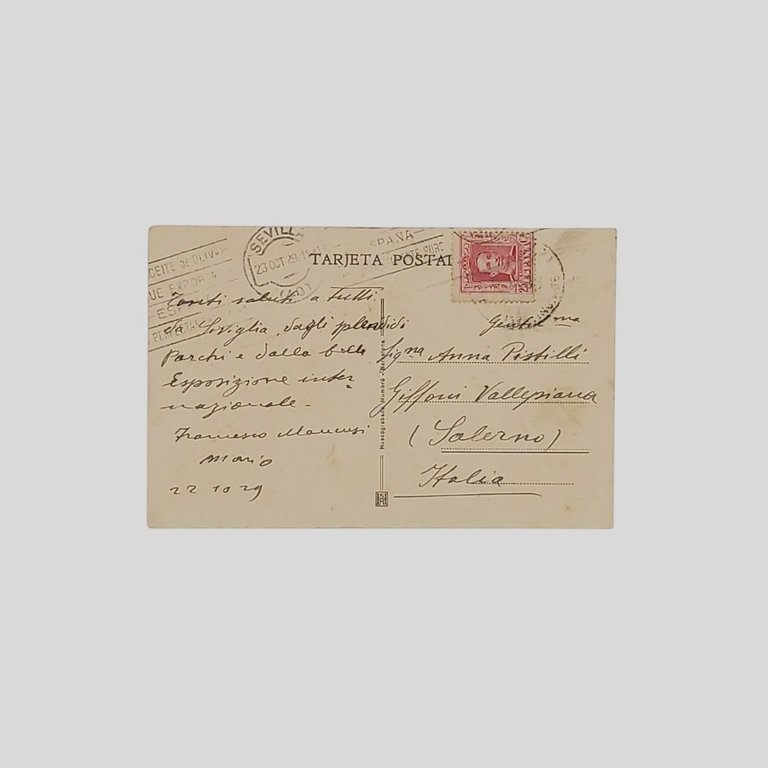 SEVILLA
23 OCT 29
ACEITE DE OLIVA
QUE EXPORTA
ESPAÑA
TARJETA POSTAL
ESPAÑA
Tanti saluti a tutti
da Siviglia, dagli splendidi
Parchi e dalla bella
Esposizione inter-
nazionale.
Francesco Mancusi
Mario
22 10 29
Huecograbado Mumbrú - Barcelona
Gentil ma
Sig na Anna Pistilli
Giffoni Vallepiana
(Salerno)
Italia